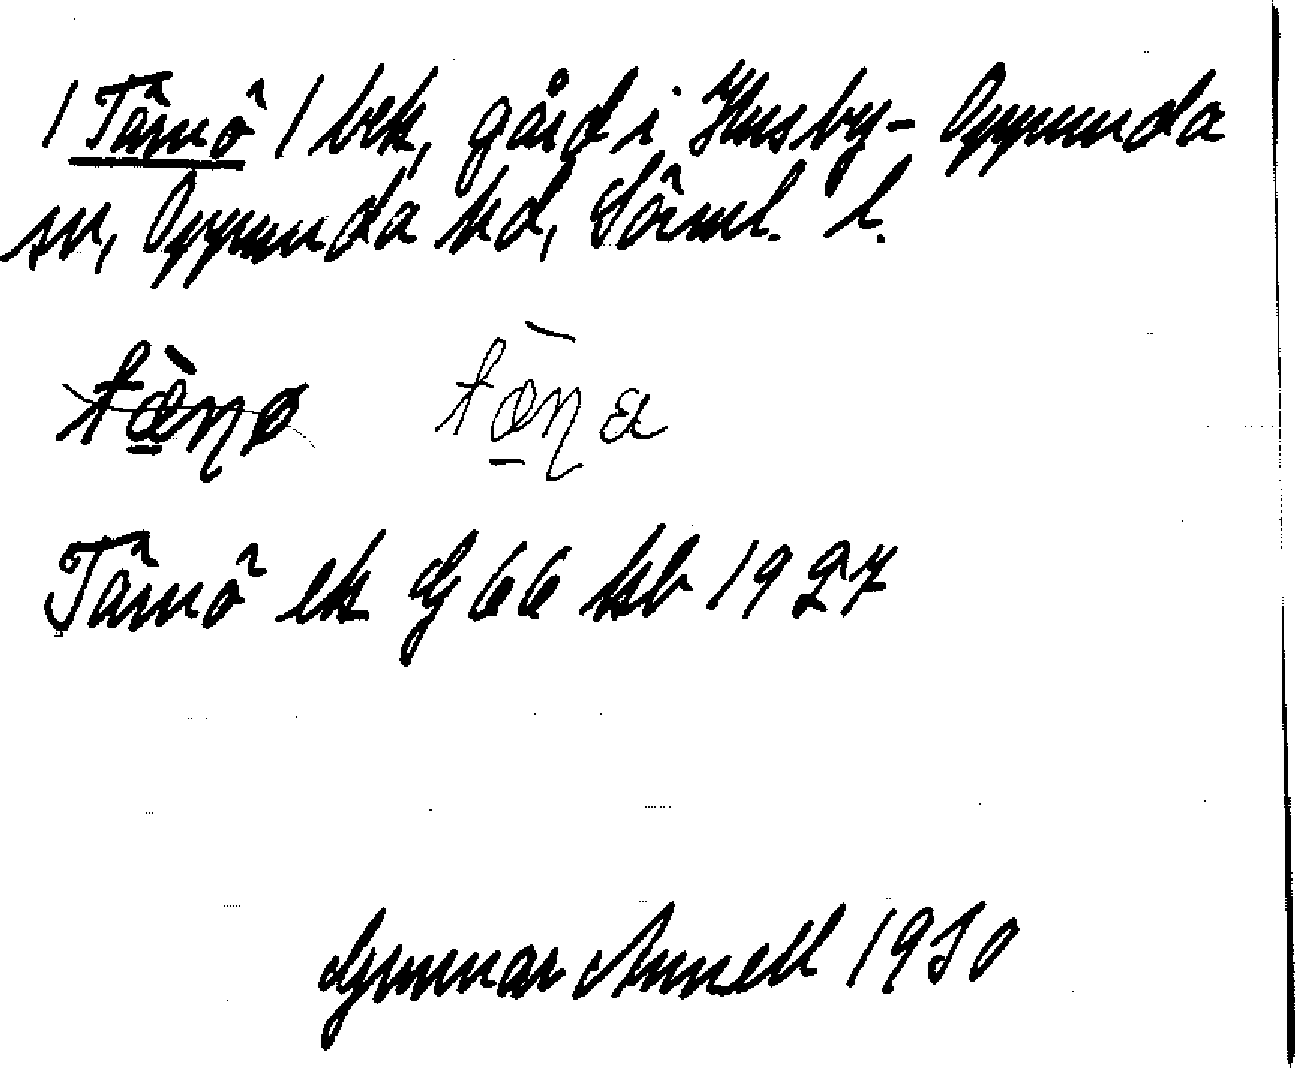 / Tärnö / bek, gård i Husby-Oppunda
sn, Oppunda hd, Söml. l.
tæ̀ṇa
Tärnö ek G 66 kb 1927
Gunnar Annell 1930